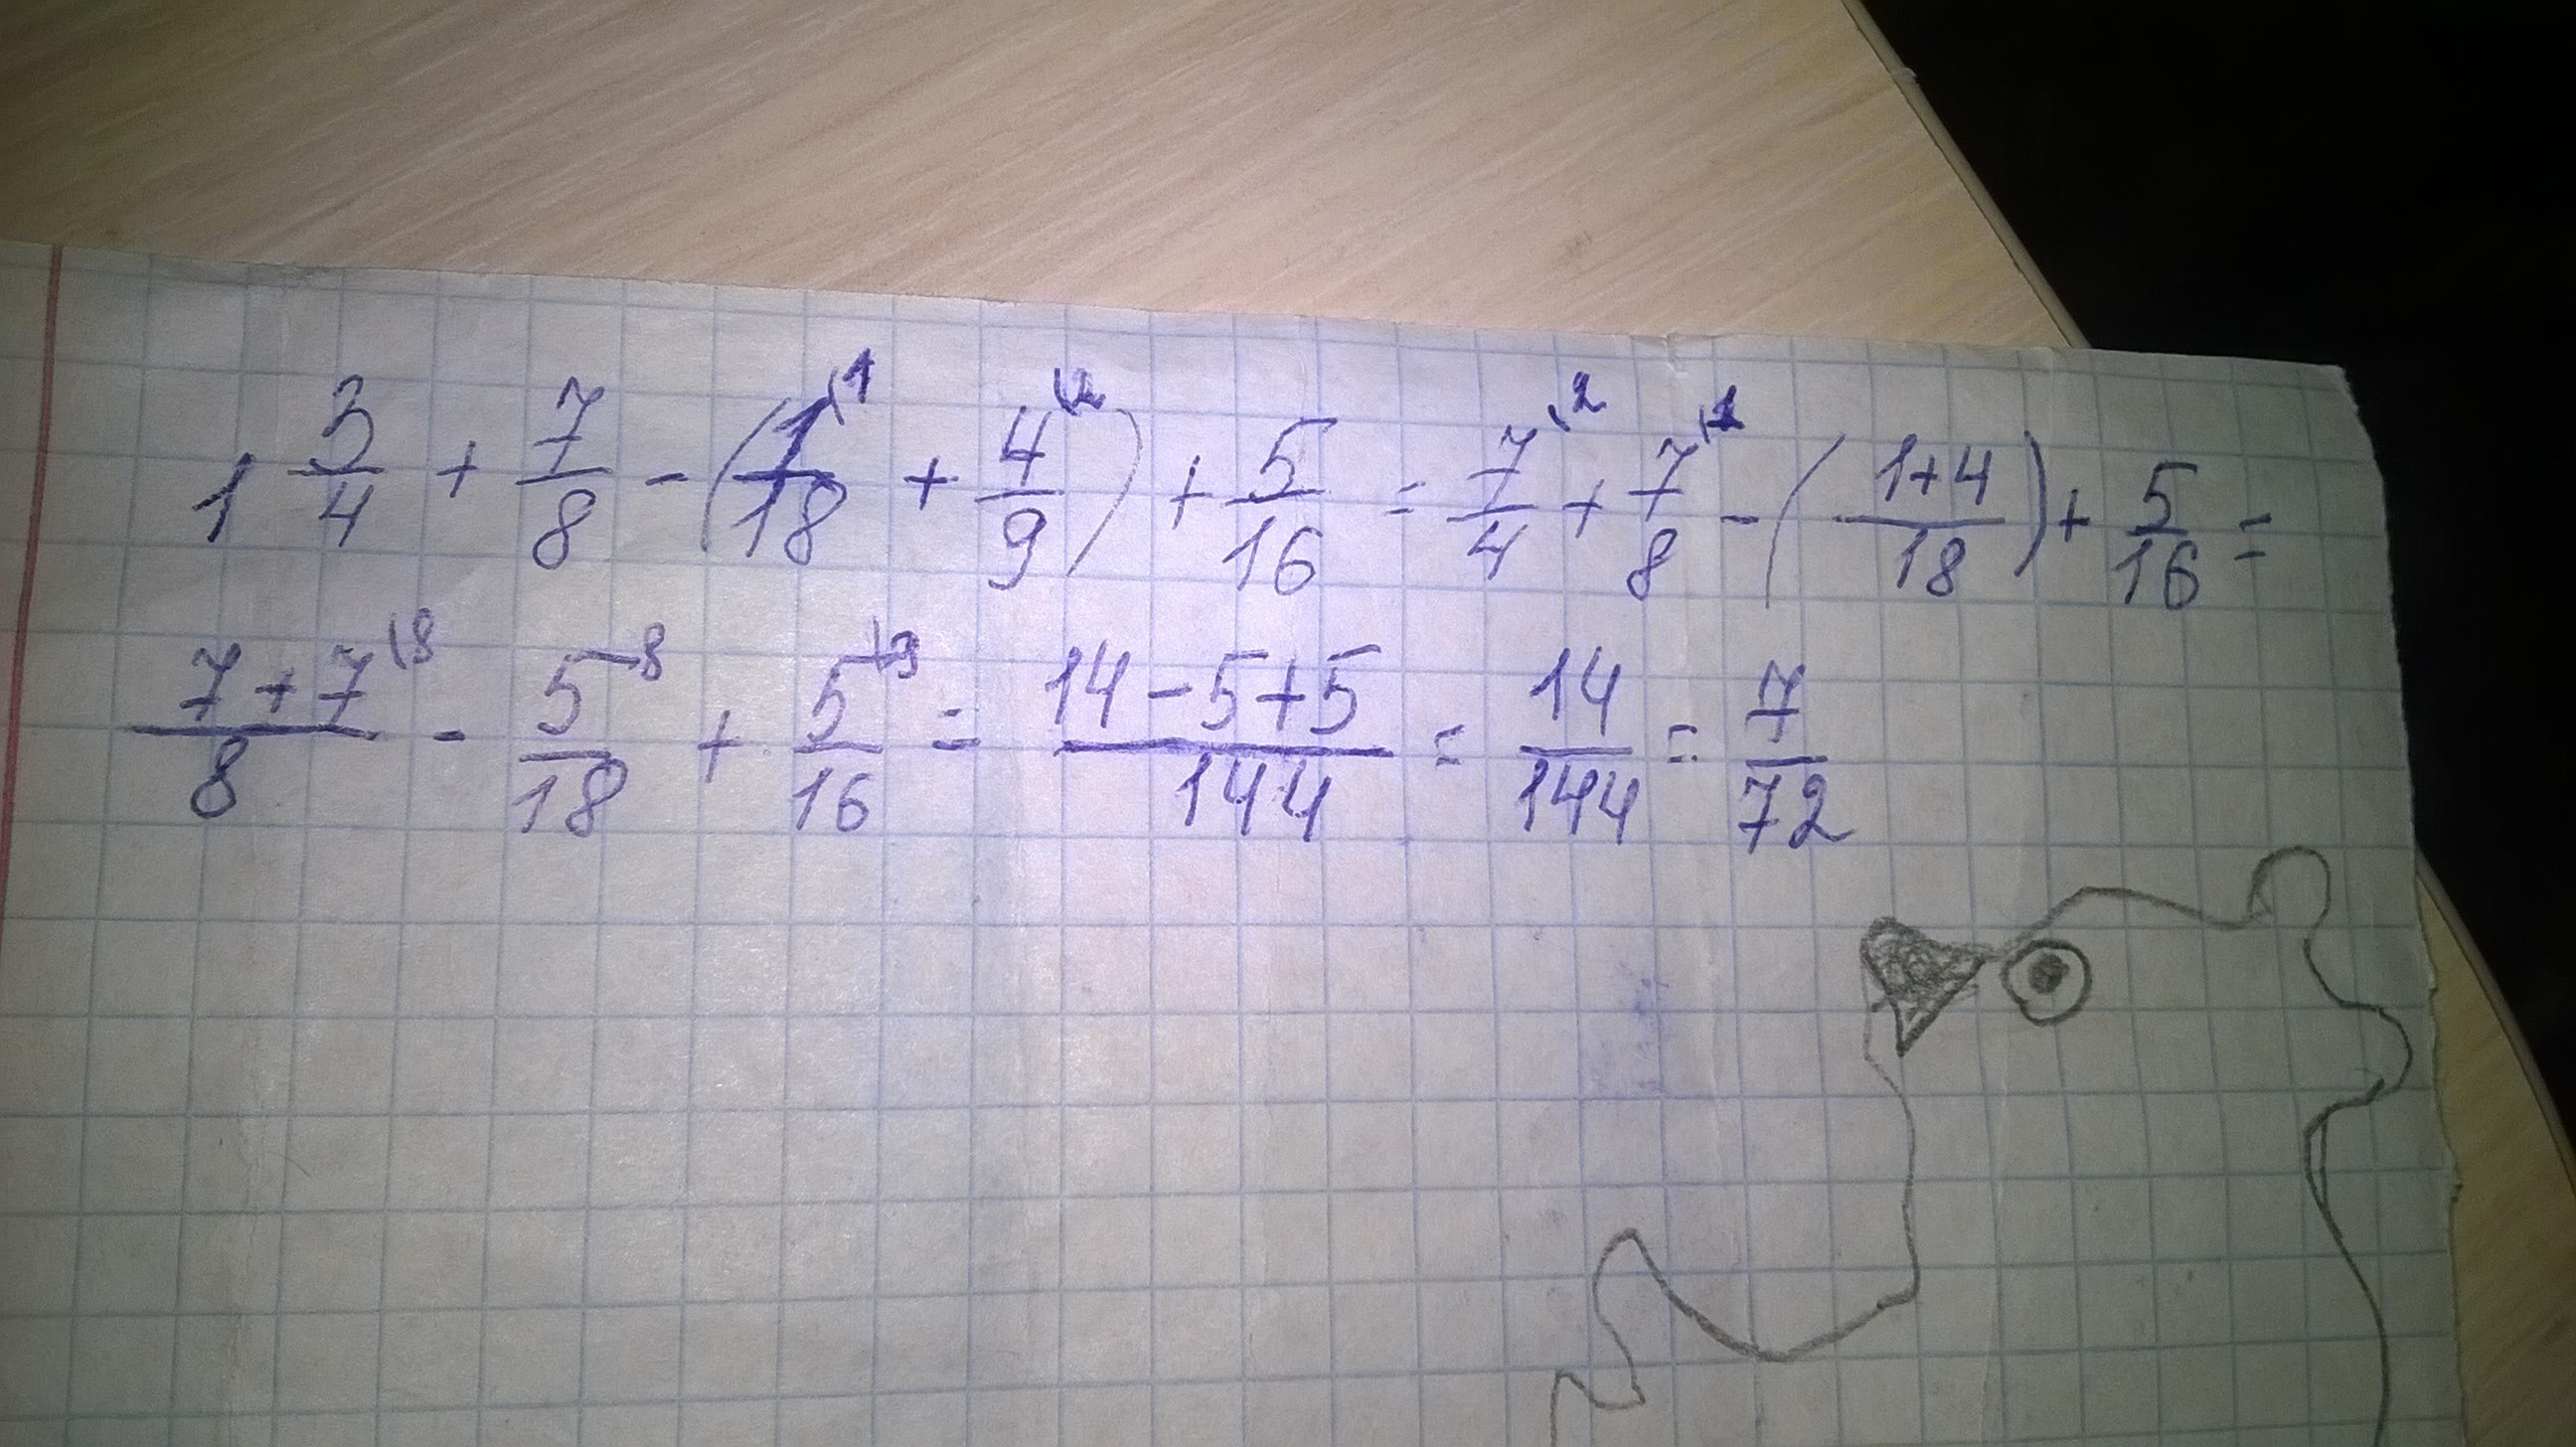 1 3/4 + 7/8 - (1/18 \1 + 4/9 \2) + 5/16 = 7/4 \2 + 7/8 \1 - (1+4/18) + 5/16 =
7+7/8 \8 - 5/18 \8 + 5/16 \9 = 14-5+5/144 = 14/144 = 7/72